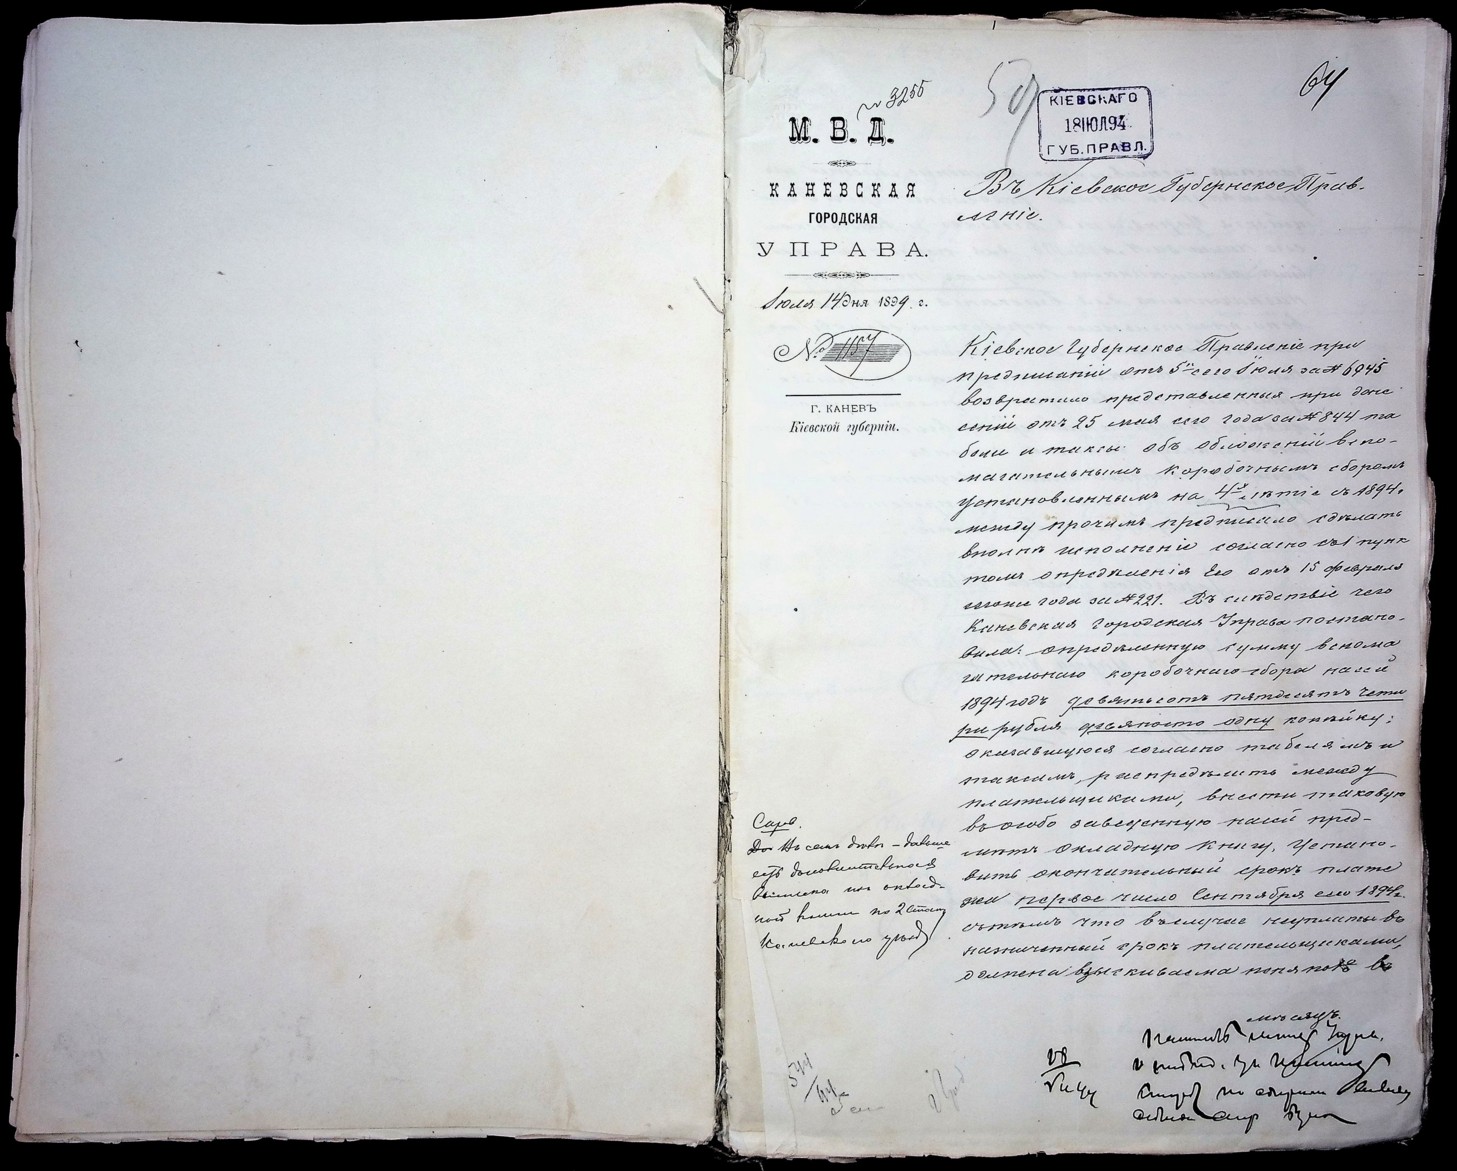 № 3255
М. В. Д.
КАНЕВСКАЯ
ГОРОДСКАЯ
УПРАВА.
Іюля 14 дня 1894 г.
№ 1157
Г. КАНЕВЪ
Кіевской губерніи.
59
КІЕВСКАГО
18 ІЮЛ 94
ГУБ. ПРАВЛ.
64
Въ Кіевское Губернское Прав-
леніе.
Кіевское Губернское Правленіе при
предписаніи отъ 5 сего Іюля за № 6945
возвратило представленныя при доне
сеніи отъ 25 мая сего года за № 844 та
бели и таксы объ обложеніи вспо-
магательнымъ коробочнымъ сборомъ
установленнымъ на 4х лѣтіе съ 1894.
между прочимъ предписало сдѣлать
вполнѣ исполненіе согласно съ 1 пунк
томъ опредѣленія его отъ 15 февраля
сего же года за № 221. Въ слѣдствіе чего
Каневская Городская Управа постано-
вила: опредѣленную сумму вспома
гательнаго коробочнаго сбора на сей
1894 годъ девятьсотъ пятдесятъ чети
ри рубля девяносто одну копѣйку;
оказавшуюся согласно табелямъ и
таксамъ, распредѣлить между
плательщиками, внести таковую
въ особо заведенную на сей пред-
метъ окладную книгу, устано-
вить окончательный срокъ плате
жа первое число Сентября сего 1894 г.
съ тѣмъ что въ случае неуплаты въ
назначенный срокъ плательщиками,
должна взыскиваема
Каневскаго уѣзда
544
64